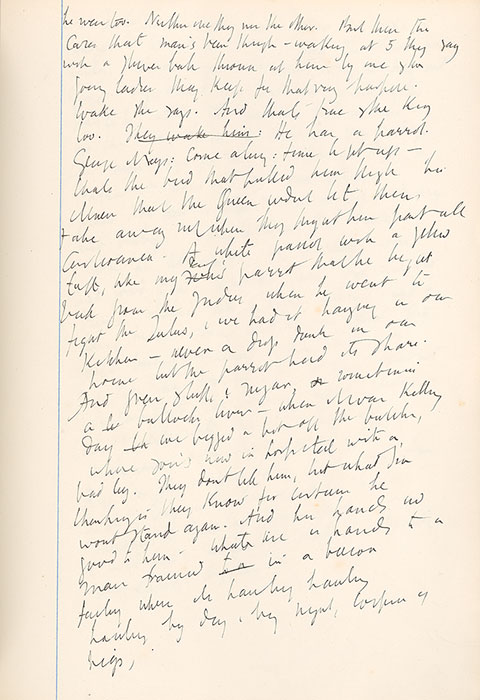 he went too. Neither one thing nor the other. And then the
cares that man's been through – waking at 5 they say
with a flower ball thrown at him by one of the
young ladies they keep for that very purpose.
Wake she says. And that's true of the King
too. They wake him. He has a parrot.
George it says: come along: time to get up –
that's the bird that pulled him through his
illness that the Queen wouldn't let them
take away not when they thought him past all
endurance. A white parrot with a yellow
tuft, like my parrot that he bought
back from the Indies when he went to
fight the Zulus, & we had it hanging in our
kitchen – never a drop drank in our
home but the parrot had its share.
And green stuff, & sugar, sometimes
a bullocks liver – when it was killing
day we begged a bit off the butcher,
whose son's now in hospital with a
bad leg. They don't tell him, but what I'm
thinking is they know for certain he
wont stand again. And his hands no
good to him. What are hands to a
man trained to in a bacon
factory where its hauling hauling
hauling by day & by night, corpses of
pigs,